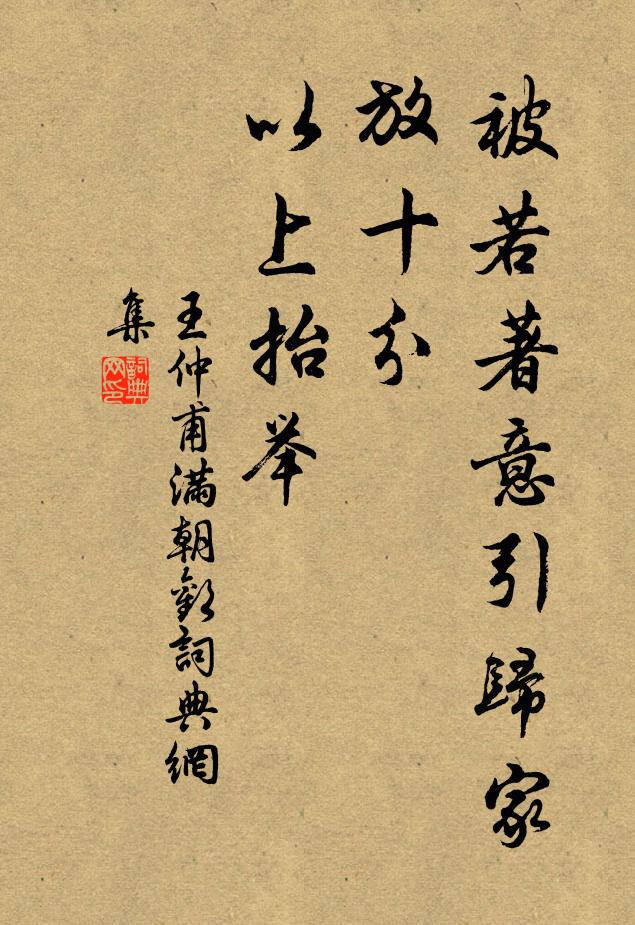 被若著意引歸家
放十分
以上抬举
王仲甫滿朝歡詞典網
集
詞典
网印